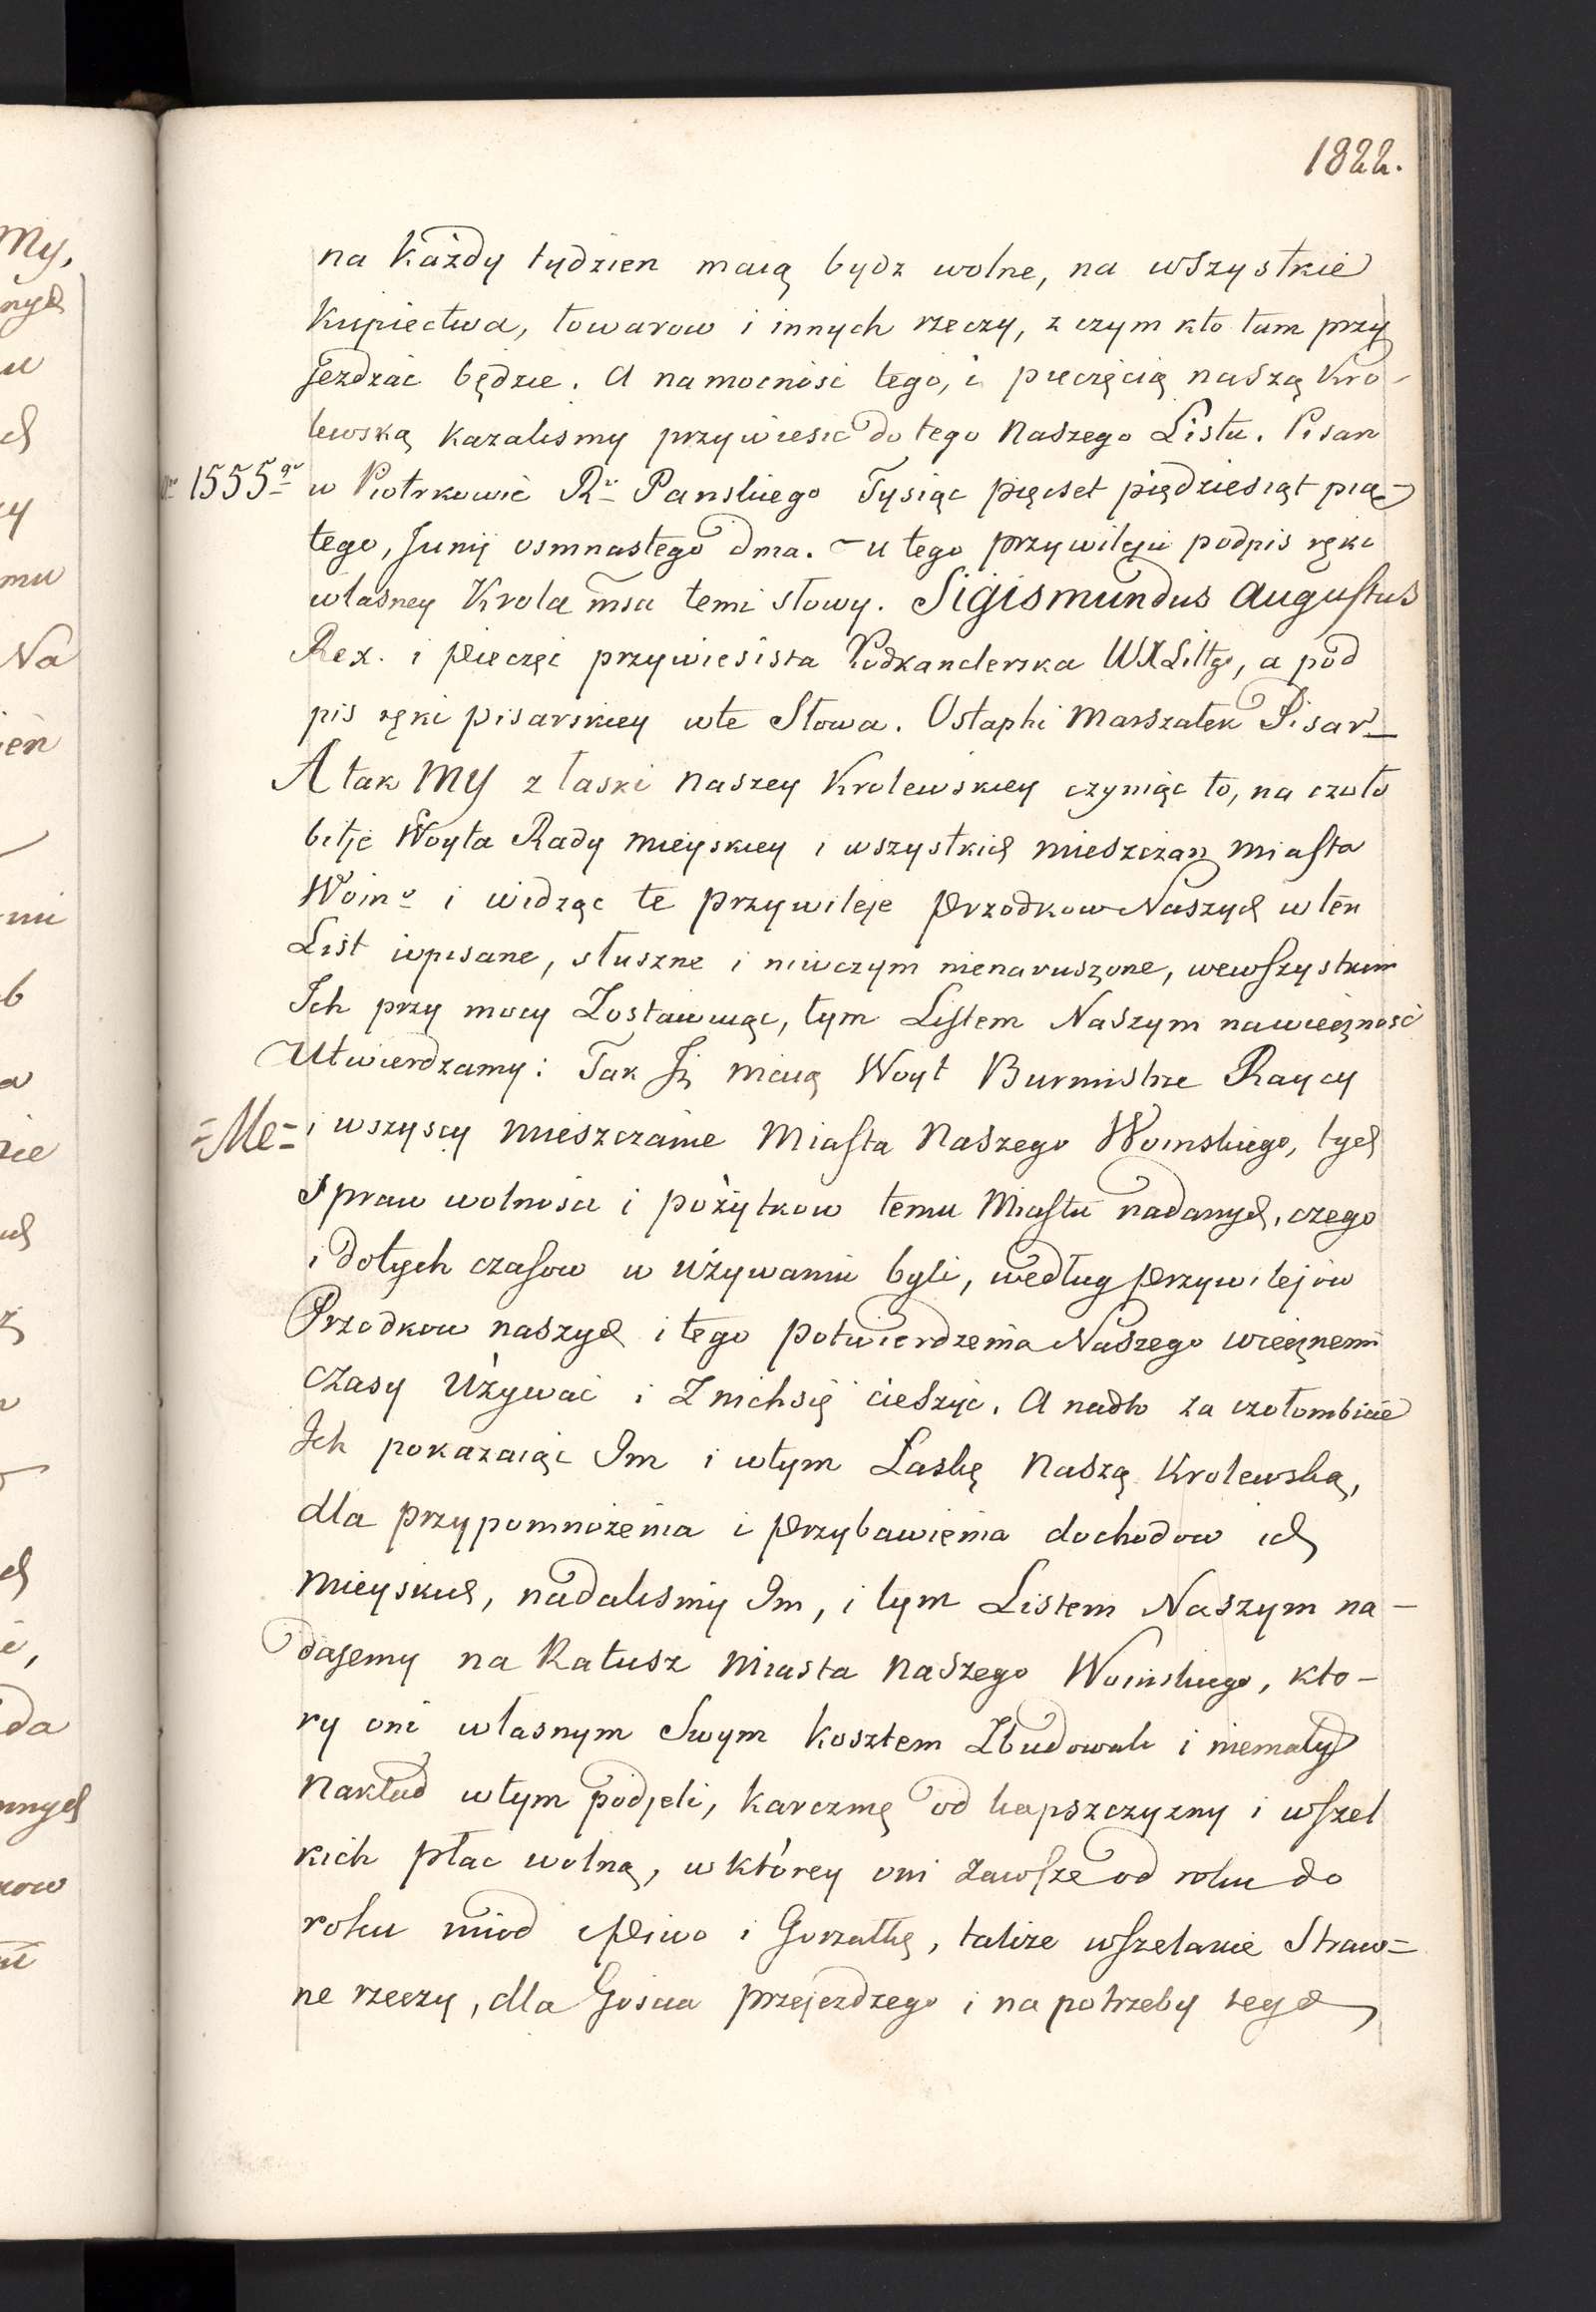 1822.
na każdy tydzien maią bydz wolne, na wszystkie
kupiectwa, towarow i innych rzeczy, z czym kto tam przy
jezdzać będzie. A na mocnośc tego, i pieczęcią naszą Kro-
lewską kazalismy przywiesić do tego Naszego Listu. Pisan
1555go w Piotrkowie Ru Panskiego Tysiąc pięcset piędziesiąt pią-
tego, Junij osmnastego dma. - u tego przywileju podpis ręki
własney Krola msa temi słowy. Sigismundus Augustus
Rex. i pieczęć przywiesista Podkanclerska WXLittgo, a pod
pis ręki pisarskiey w te Słowa. Ostaphi Marszałek Pisar-
A tak MY z łaski Naszey Krolewskiey czyniąc to, na czoło
bitje Woyta Rady Mieyskiey i wszystkich mieszczan Miasta
Woino i widząc te przywileje Przodkow Naszych w ten
List wpisane, słuszne i niwczym nienaruszone, wewszystkim
Ich przy mocy Zostawuiąc, tym Listem Naszym nawieczność
Utwierdzamy: Tak Jż maią Woyt Burmistrze Raycy
=Me= i wszyscy mieszczanie Miasta Naszego Woinskiego, tych
Spraw wolności i pożytkow temu Miastu nadanych, czego
i dotych czasow w używaniu byli, według Przywilejow
Przodkow naszych i tego potwierdzenia Naszego wiecznemi
czasy Używać i Z nichsię cieszyć. A nadto za czołombicie
Ich pokazaiąc Im i wtym Łaskę Naszą Krolewską,
dla przypomnożenia i Przybawienia dochodow ich
Mieyskich, nadalismy Im, i tym Listem Naszym na-
dajemy na Ratusz Miasta Naszego Woinskiego, kto-
ry oni własnym Swym kosztem Zbudowali i niemały
Nakład wtym podjeli, karczmę od kapszczyzny i wszel
kich płac wolną, w którey oni zawsze od roku do
roku miod Piwo i Gorzałkę, takze wszelakie Straw=
ne rzeczy, dla Goscia przejezdzego i na potrzeby tych